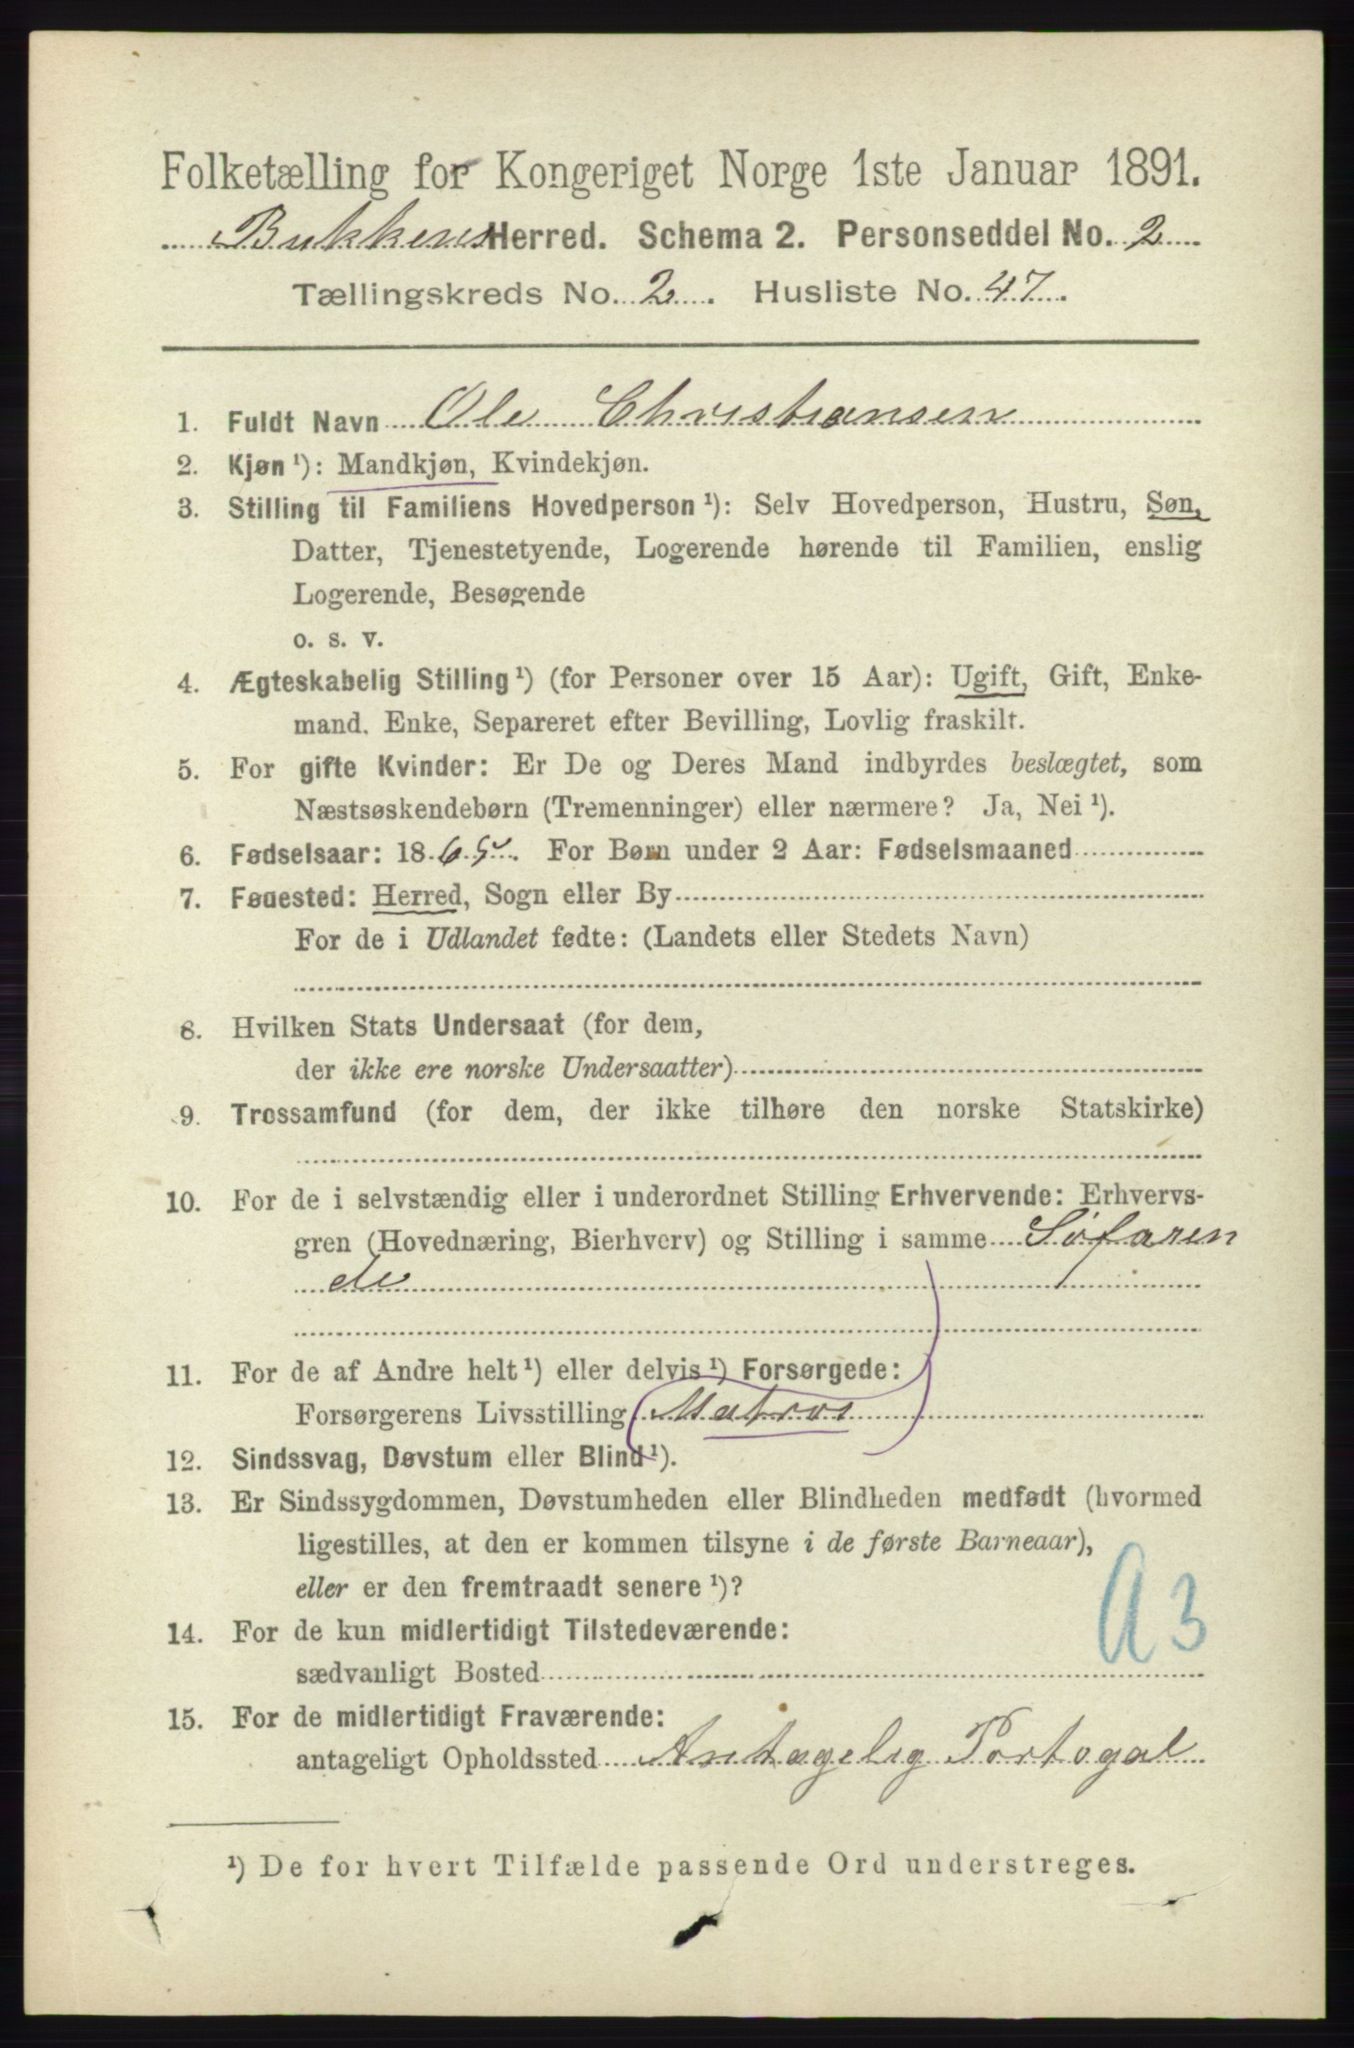 Folketælling for Kongeriget Norge 1ste Januar 1891.
Bukkens Herred. Schema 2. Personseddel No. 2
Tællingskreds No. 2. Husliste No. 47.
1. Fuldt Navn Ole Christiansen
2. Kjøn ¹): Mandkjøn, Kvindekjøn.
3. Stilling til Familiens Hovedperson ¹): Selv Hovedperson, Hustru, Søn,
Datter, Tjenestetyende, Logerende hørende til Familien, enslig
Logerende, Besøgende
o. s. v.
4. Ægteskabelig Stilling ¹) (for Personer over 15 Aar): Ugift, Gift, Enke-
mand, Enke, Separeret efter Bevilling, Lovlig fraskilt.
5. For gifte Kvinder: Er De og Deres Mand indbyrdes beslægtet, som
Næstsøskendebørn (Tremenninger) eller nærmere? Ja, Nei ¹).
6. Fødselsaar: 1865. For Børn under 2 Aar: Fødselsmaaned
7. Fødested: Herred, Sogn eller By
For de i Udlandet fødte: (Landets eller Stedets Navn)
8. Hvilken Stats Undersaat (for dem,
der ikke ere norske Undersaatter)
9. Trossamfund (for dem, der ikke tilhøre den norske Statskirke)
10. For de i selvstændig eller i underordnet Stilling Erhvervende: Erhvervs-
gren (Hovednæring, Bierhverv) og Stilling i samme Søfaren
de
11. For de af Andre helt ¹) eller delvis ¹) Forsørgede:
Forsørgerens Livsstilling Matros
12. Sindssvag, Døvstum eller Blind ¹).
13. Er Sindssygdommen, Døvstumheden eller Blindheden medfødt (hvormed
ligestilles, at den er kommen tilsyne i de første Barneaar),
eller er den fremtraadt senere ¹)?
A3
14. For de kun midlertidigt Tilstedeværende:
sædvanligt Bosted
15. For de midlertidigt Fraværende:
antageligt Opholdssted Antagelig Portogal
¹) De for hvert Tilfælde passende Ord understreges.